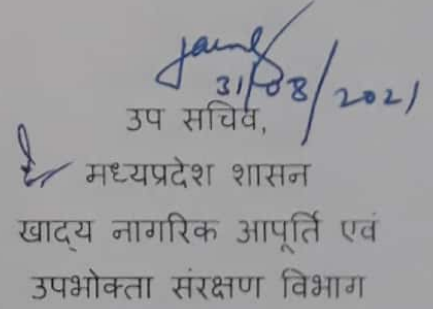 31/08/2021
उप सचिव,
मध्यप्रदेश शासन
खाद्य नागरिक आपूर्ति एवं
उपभोक्ता संरक्षण विभाग